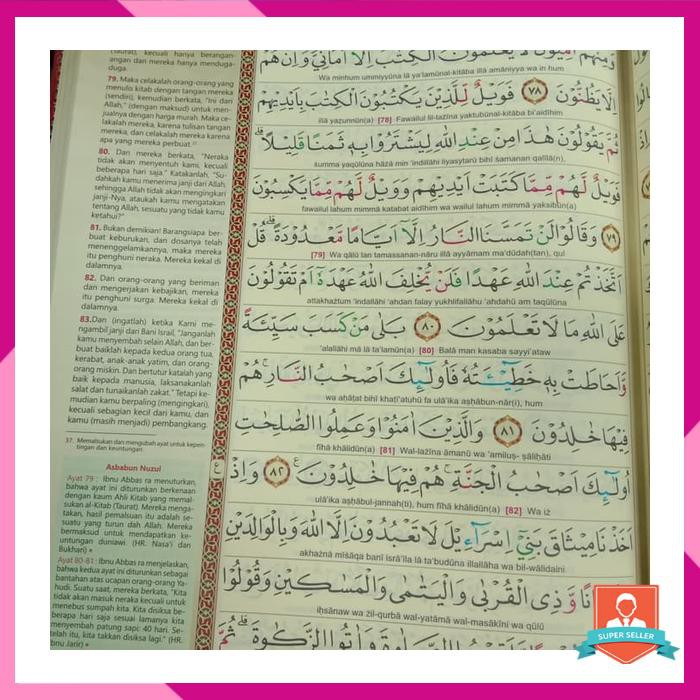 (Taurat), kecuali hanya berangan-
angan dan mereka hanya menduga-
duga.
79. Maka celakalah orang-orang yang
menulis kitab dengan tangan mereka
(sendiri), kemudian berkata, "Ini dari
Allah," (dengan maksud) untuk men-
jualnya dengan harga murah. Maka ce-
lakalah mereka, karena tulisan tangan
mereka, dan celakalah mereka karena
apa yang mereka perbuat.³⁷
80. Dan mereka berkata, "Neraka
tidak akan menyentuh kami, kecuali
beberapa hari saja." Katakanlah, "Su-
dahkah kamu menerima janji dari Allah,
sehingga Allah tidak akan mengingkari
janji-Nya, ataukah kamu mengatakan
tentang Allah, sesuatu yang tidak kamu
ketahui?"
81. Bukan demikian! Barangsiapa ber-
buat keburukan, dan dosanya telah
menenggelamkannya, maka mereka
itu penghuni neraka. Mereka kekal di
dalamnya.
82. Dan orang-orang yang beriman
dan mengerjakan kebajikan, mereka
itu penghuni surga. Mereka kekal di
dalamnya.
83.Dan (ingatlah) ketika Kami me-
ngambil janji dari Bani Israil, "Janganlah
kamu menyembah selain Allah, dan ber-
buat baiklah kepada kedua orang tua,
kerabat, anak-anak yatim, dan orang-
orang miskin. Dan bertutur katalah yang
baik kepada manusia, laksanakanlah
salat dan tunaikanlah zakat." Tetapi ke-
mudian kamu berpaling (mengingkari),
kecuali sebagian kecil dari kamu, dan
kamu (masih menjadi) pembangkang.
37. Memalsukan dan mengubah ayat untuk kepen-
tingan dan keuntungan.
Asbabun Nuzul
Ayat 79 : Ibnu Abbas ra menuturkan,
bahwa ayat ini diturunkan berkenaan
dengan kaum Ahli Kitab yang memal-
sukan al-Kitab (Taurat). Mereka menga-
takan, hasil pemalsuan itu adalah se-
suatu yang turun dah Allah. Mereka
bermaksud untuk mendapatkan ke-
untungan duniawi (HR. Nasa'i dan
Bukhari)
Ayat 80-81 : Ibnu Abbas ra menjelaskan,
bahwa kedua ayat ini diturunkan sebagai
bantahan atas ucapan orang-orang Ya-
hudi. Suatu saat, mereka berkata, "Kita
tidak akan masuk neraka kecuali untuk
menebus sumpah kita. Kita disiksa be-
berapa hari saja sesuai lamanya kita
menyembah patung sapi: 40 hari. Se-
telah itu, kita takkan disiksa lagi." (HR.
Ibnu Jarir)
وَمِنْهُمْ اُمِّيُّوْنَ لَا يَعْلَمُوْنَ الْكِتٰبَ اِلَّآ اَمَانِيَّ وَاِنْ هُمْ
Wa minhum ummiyyūna lā ya'lamūnal-kitāba illā amāniyya wa in hum
اِلَّا يَظُنُّوْنَ ٧٨ فَوَيْلٌ لِّلَّذِيْنَ يَكْتُبُوْنَ الْكِتٰبَ بِاَيْدِيْهِمْ
illā yazunnūn(a) [78] Fawailul lil-lażīna yaktubūnal-kitāba bi'aidīhim
ثُمَّ يَقُوْلُوْنَ هٰذَا مِنْ عِنْدِ اللّٰهِ لِيَشْتَرُوْا بِهٖ ثَمَنًا قَلِيْلًا ۗ
summa yaqūlūna hāżā min 'indillāhi liyasytarū bihī ṡamanan qalīlā(n),
فَوَيْلٌ لَّهُمْ مِّمَّا كَتَبَتْ اَيْدِيْهِمْ وَوَيْلٌ لَّهُمْ مِّمَّا يَكْسِبُوْنَ
fawailul lahum mimmā katabat aidīhim wa wailul lahum mimmā yaksibūn(a)
٧٩ وَقَالُوْا لَنْ تَمَسَّنَا النَّارُ اِلَّآ اَيَّامًا مَّعْدُوْدَةً ۗ قُلْ
[79] Wa qālū lan tamassanan-nāru illā ayyāmam ma'dūdah(tan), qul
اَتَّخَذْتُمْ عِنْدَ اللّٰهِ عَهْدًا فَلَنْ يُّخْلِفَ اللّٰهُ عَهْدَهٗٓ اَمْ تَقُوْلُوْنَ
attakhażtum 'indallāhi 'ahdan falay yukhlifallāhu 'ahdahū am taqūlūna
عَلَى اللّٰهِ مَا لَا تَعْلَمُوْنَ ٨٠ بَلٰى مَنْ كَسَبَ سَيِّئَةً
'alallāhi mā lā ta'lamūn(a) [80] Balā man kasaba sayyi'ataw
وَّاَحَاطَتْ بِهٖ خَطِيْۤـَٔتُهٗ فَاُولٰۤىِٕكَ اَصْحٰبُ النَّارِ ۚ هُمْ
wa aḥāṭat bihī khaṭī'atuhū fa ulā'ika aṣḥābun-nār(i), hum
فِيْهَا خٰلِدُوْنَ ٨١ وَالَّذِيْنَ اٰمَنُوْا وَعَمِلُوا الصّٰلِحٰتِ
fīhā khālidūn(a) [81] Wal-lażīna āmanū wa 'amiluṣ- ṣāliḥāti
اُولٰۤىِٕكَ اَصْحٰبُ الْجَنَّةِ ۚ هُمْ فِيْهَا خٰلِدُوْنَ ٨٢ وَاِذْ
ulā'ika aṣḥābul-jannah(ti), hum fīhā khālidūn(a) [82] Wa iż
اَخَذْنَا مِيْثَاقَ بَنِيْٓ اِسْرَاۤءِيْلَ لَا تَعْبُدُوْنَ اِلَّا اللّٰهَ وَبِالْوَالِدَيْنِ
akhażnā mīṡāqa banī isrā'īla lā ta'budūna illallāha wa bil-wālidaini
نًا وَّذِى الْقُرْبٰى وَالْيَتٰمٰى وَالْمَسٰكِيْنِ وَقُوْلُوْا
iḥsānaw wa żil-qurbā wal-yatāmā wal-masākīni wa qūlū
وَاٰتُوا الزَّكٰوةَ ۗ ثُمَّ
SUPER SELLER